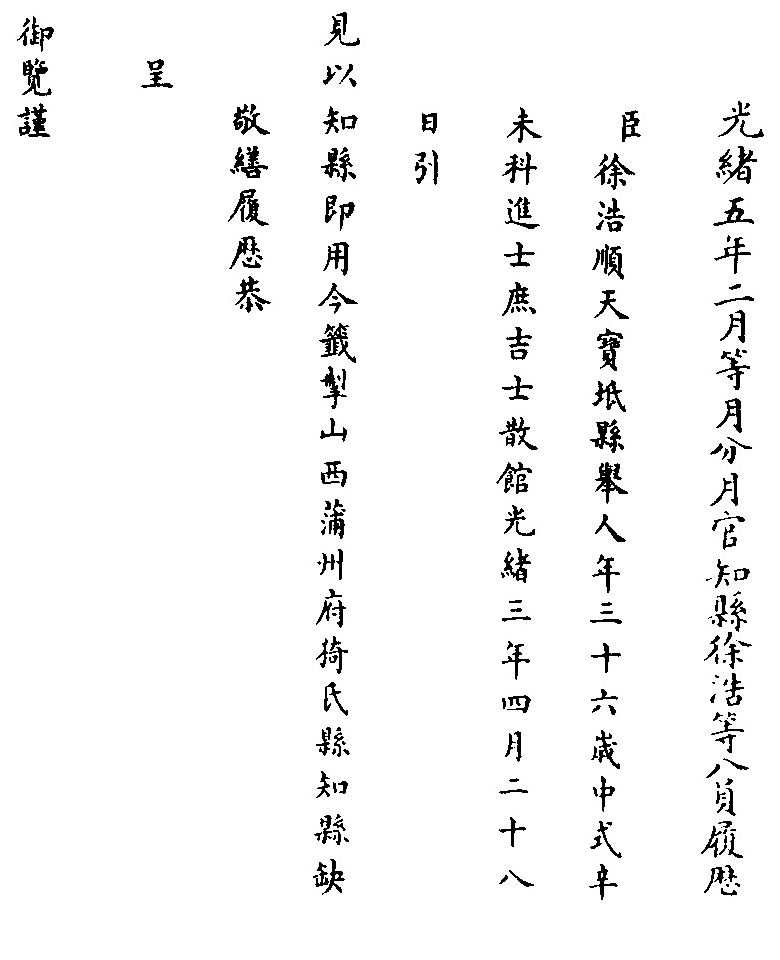 光緒五年二月等月分月官知縣徐浩等八員履歷
臣徐浩順天寶坻縣舉人年三十六歲中式辛
未科進士庶吉士散館光緒三年四月二十八
日引
見以知縣即用今籤掣山西蒲州府猗氏縣知縣缺
敬繕履歷恭
呈
御覽謹